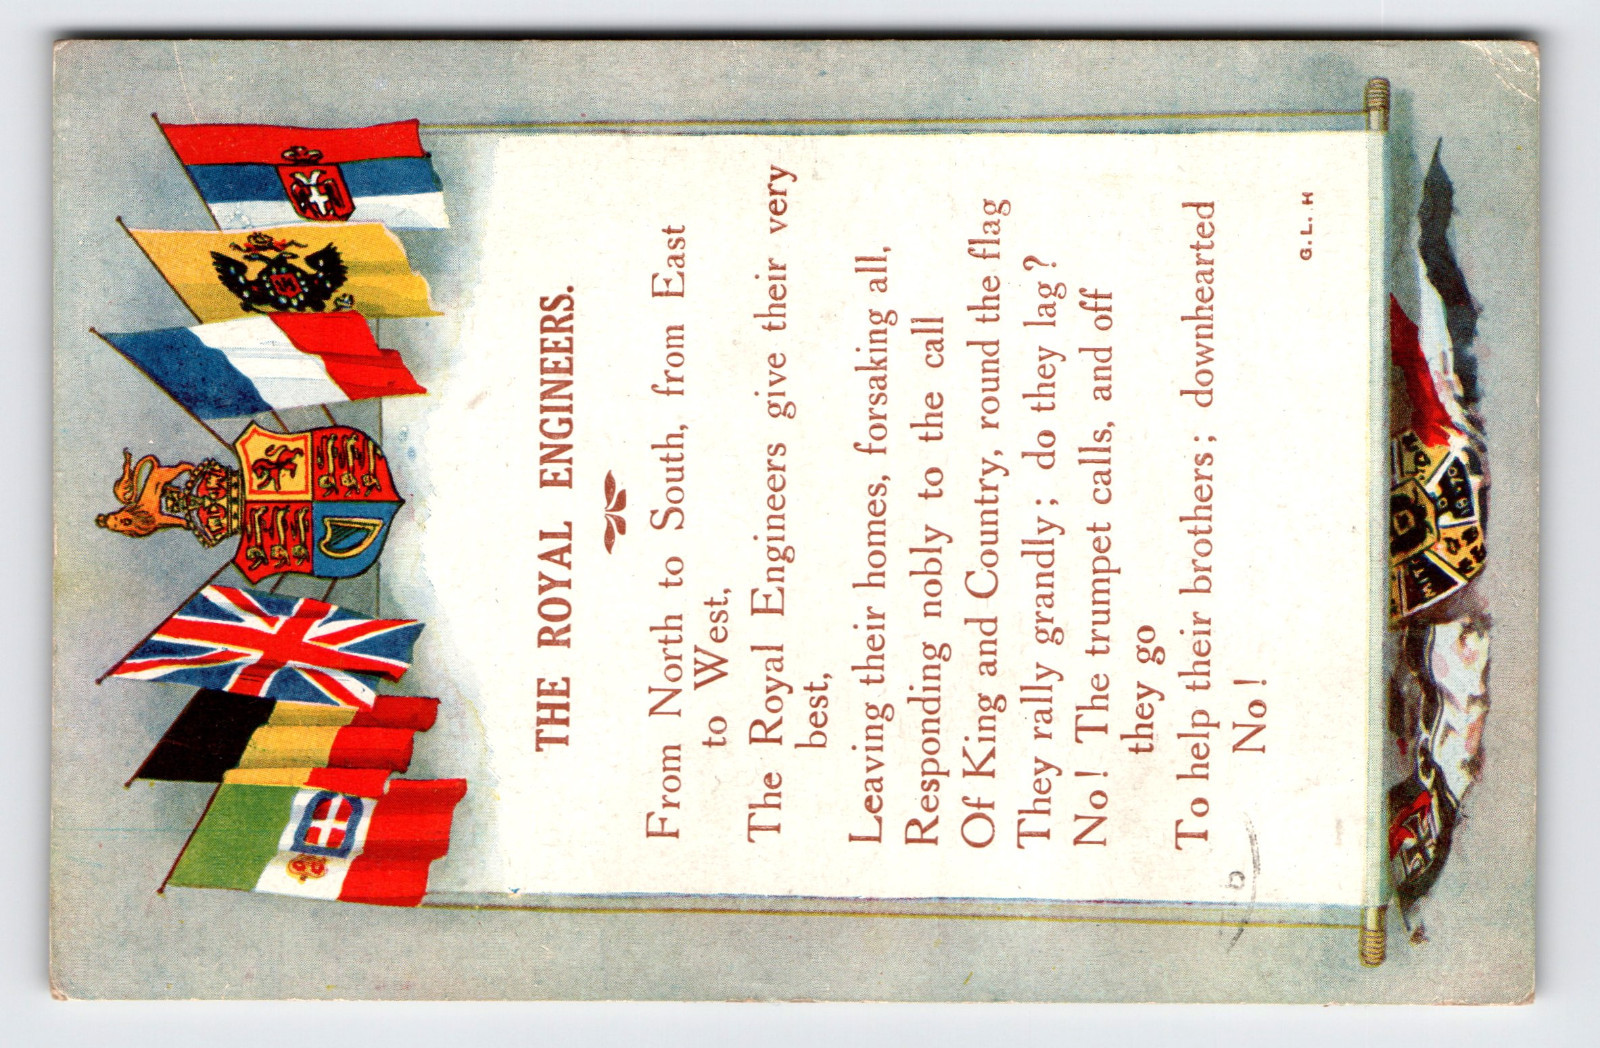 THE ROYAL ENGINEERS.
From North to South, from East
to West,
The Royal Engineers give their very
best,
Leaving their homes, forsaking all,
Responding nobly to the call
Of King and Country, round the flag
They rally grandly; do they lag?
No! The trumpet calls, and off
they go
To help their brothers; downhearted
No!
G. L. H